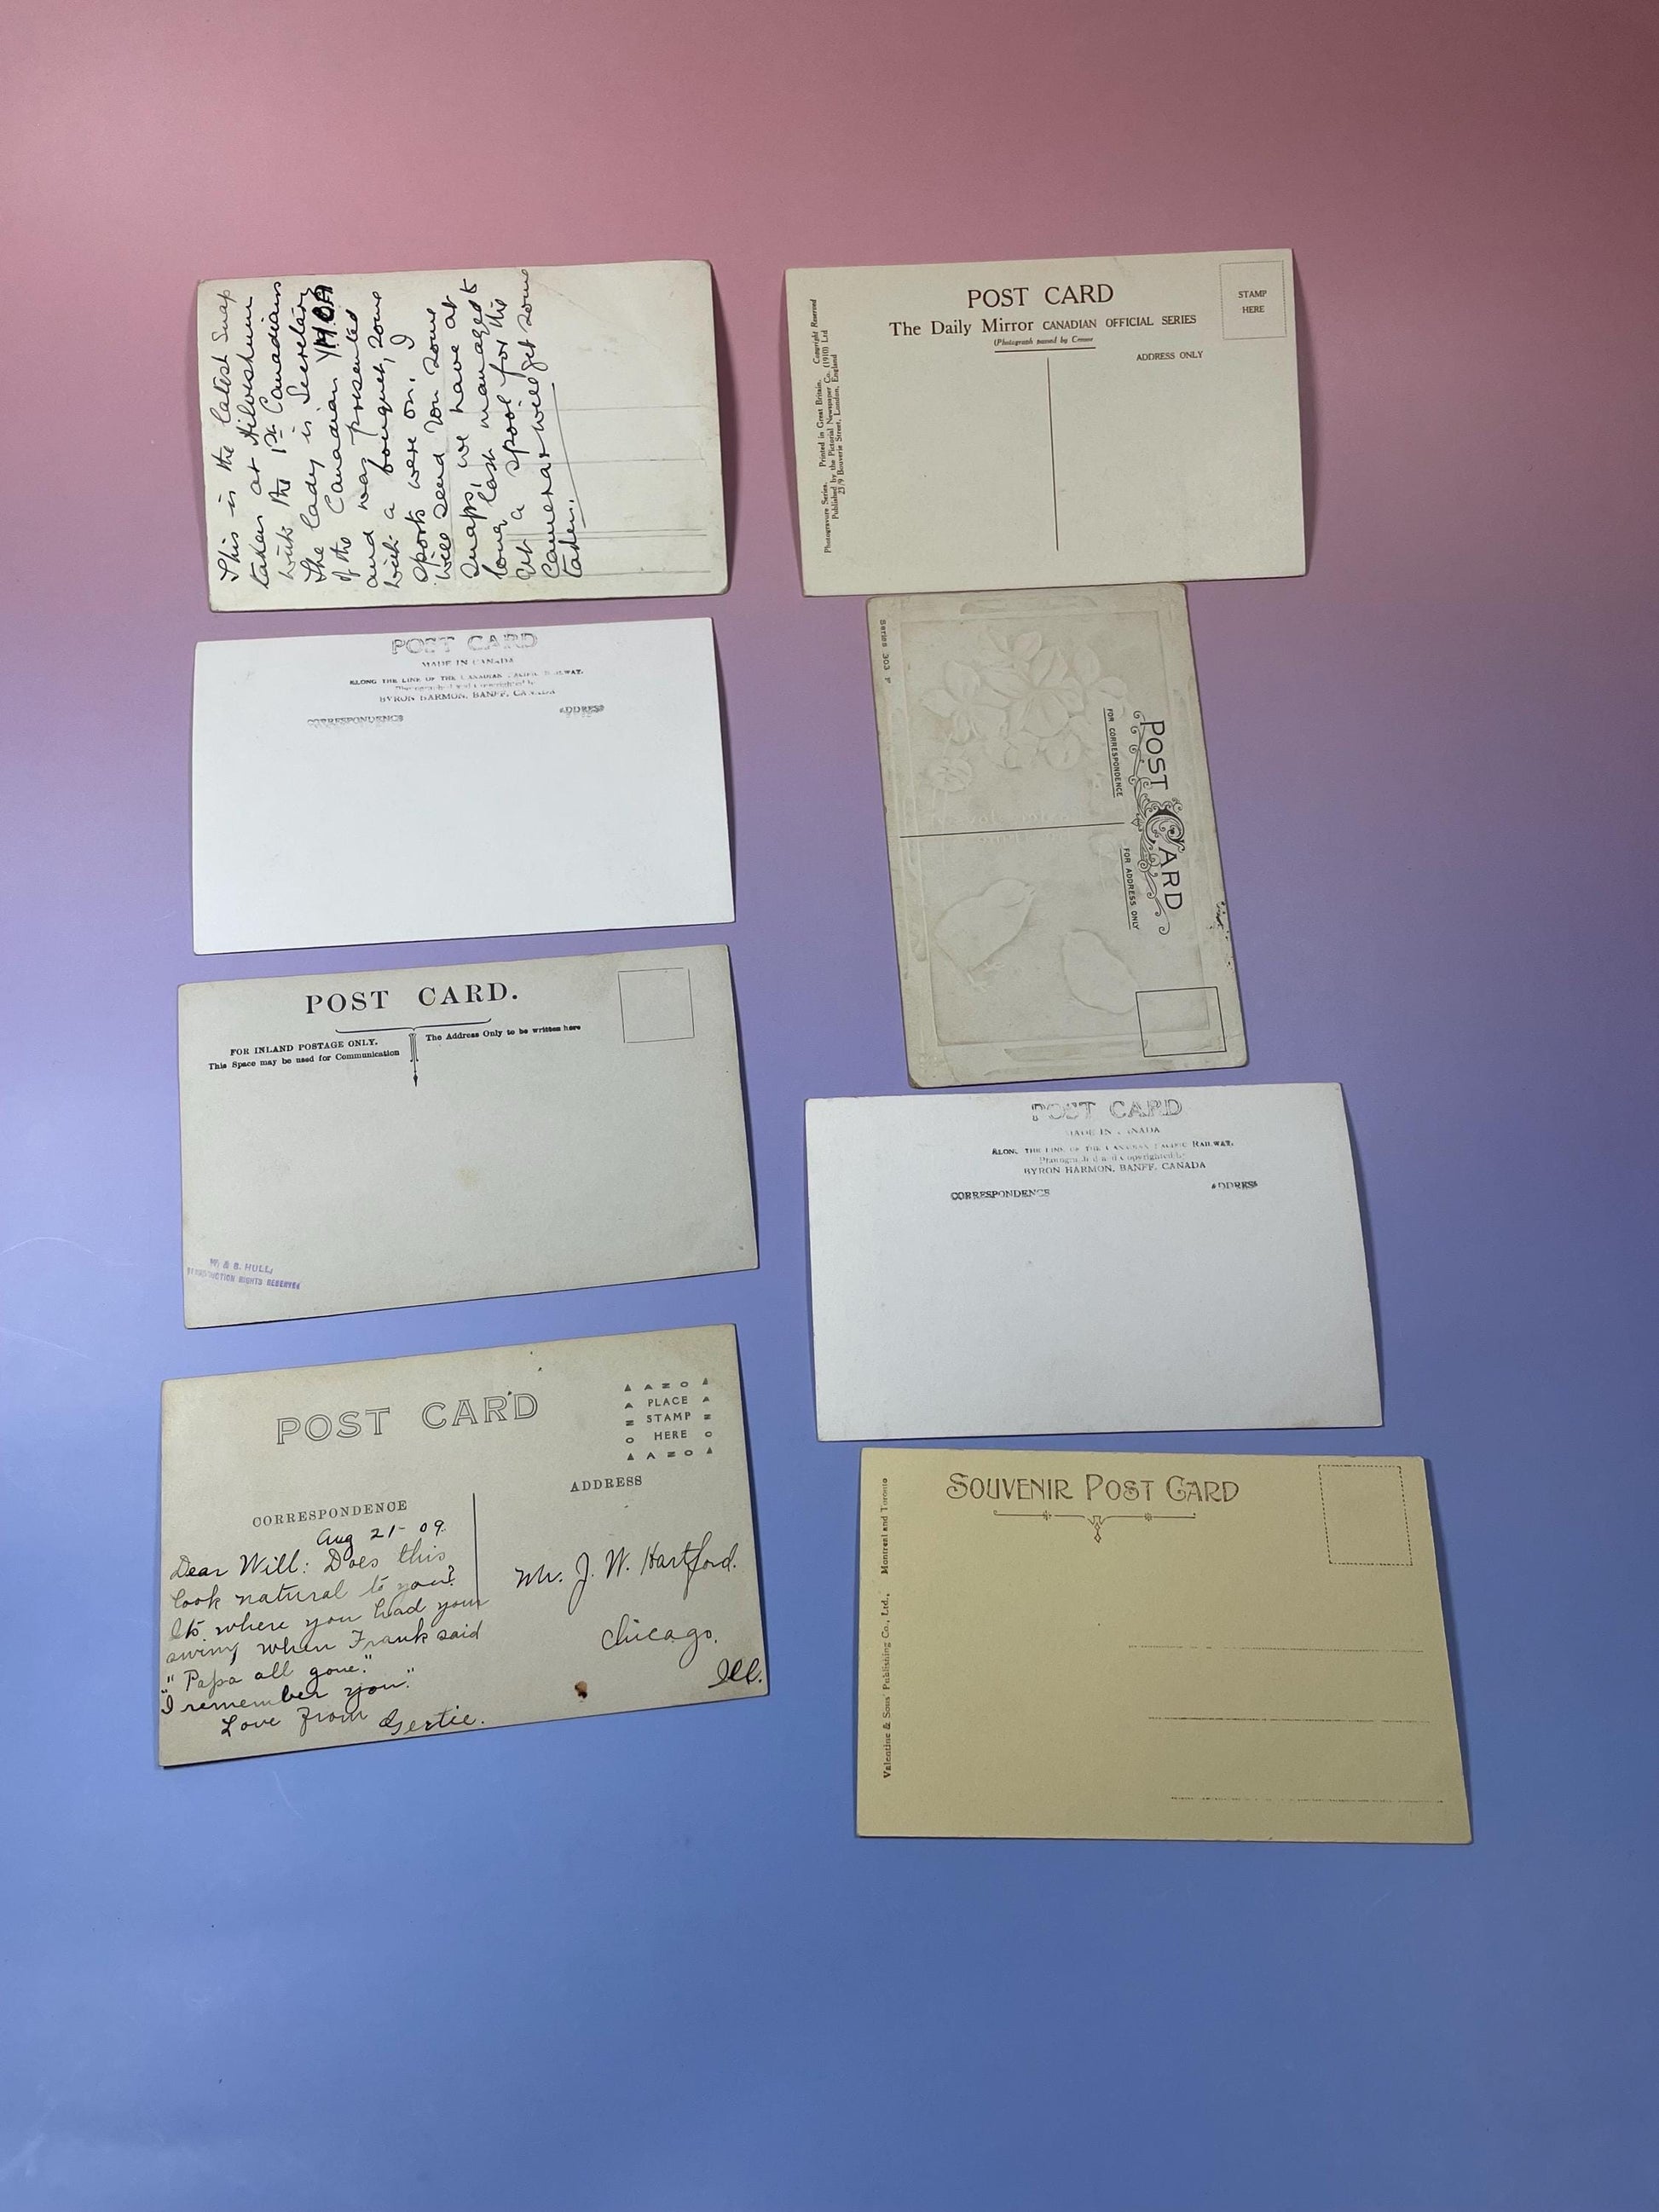 This is the latest Snap
taken at Hilversham
with the 1st Canadians
The lady is Secretary
of the Canadian YMCA
and was presented
with a bouquet, some
sports were on. I
will send you some
snaps, we have at
long last managed to
get a spool for the
camera & will get some
taken.
POST CARD
The Daily Mirror CANADIAN OFFICIAL SERIES
(Photograph passed by Censor
ADDRESS ONLY
STAMP
HERE
Photogravure Series. Printed in Great Britain. Copyright Reserved
Published by the Pictorial Newspaper Co. (1910) Ltd
23/9 Bouverie Street, London, England
POST CARD
MADE IN CANADA
ALONG THE LINE OF THE CANADIAN PACIFIC RAILWAY.
Photographed and Copyrighted by
BYRON HARMON, BANFF, CANADA
CORRESPONDENCE
ADDRESS
Series 303 F
POST CARD
FOR CORRESPONDENCE
FOR ADDRESS ONLY
POST CARD.
FOR INLAND POSTAGE ONLY.
This Space may be used for Communication
The Address Only to be written here
& S. HULL,
REPRODUCTION RIGHTS RESERVED
POST CARD
MADE IN CANADA
ALONG THE LINE OF THE CANADIAN PACIFIC RAILWAY.
Photographed and Copyrighted by
BYRON HARMON, BANFF, CANADA
CORRESPONDENCE
ADDRESS
POST CARD
AZO
PLACE
STAMP
HERE
AZO
CORRESPONDENCE
ADDRESS
Aug 21- 09.
Dear Will: Does this
look natural to you?
Its where you had your
swing when Frank said
"Papa all gone."
"I remember you."
Love from
Gertie.
Mr. J. W. Hartford.
Chicago.
Ill.
SOUVENIR POST CARD
Valentine & Sons' Publishing Co., Ltd., Montreal and Toronto